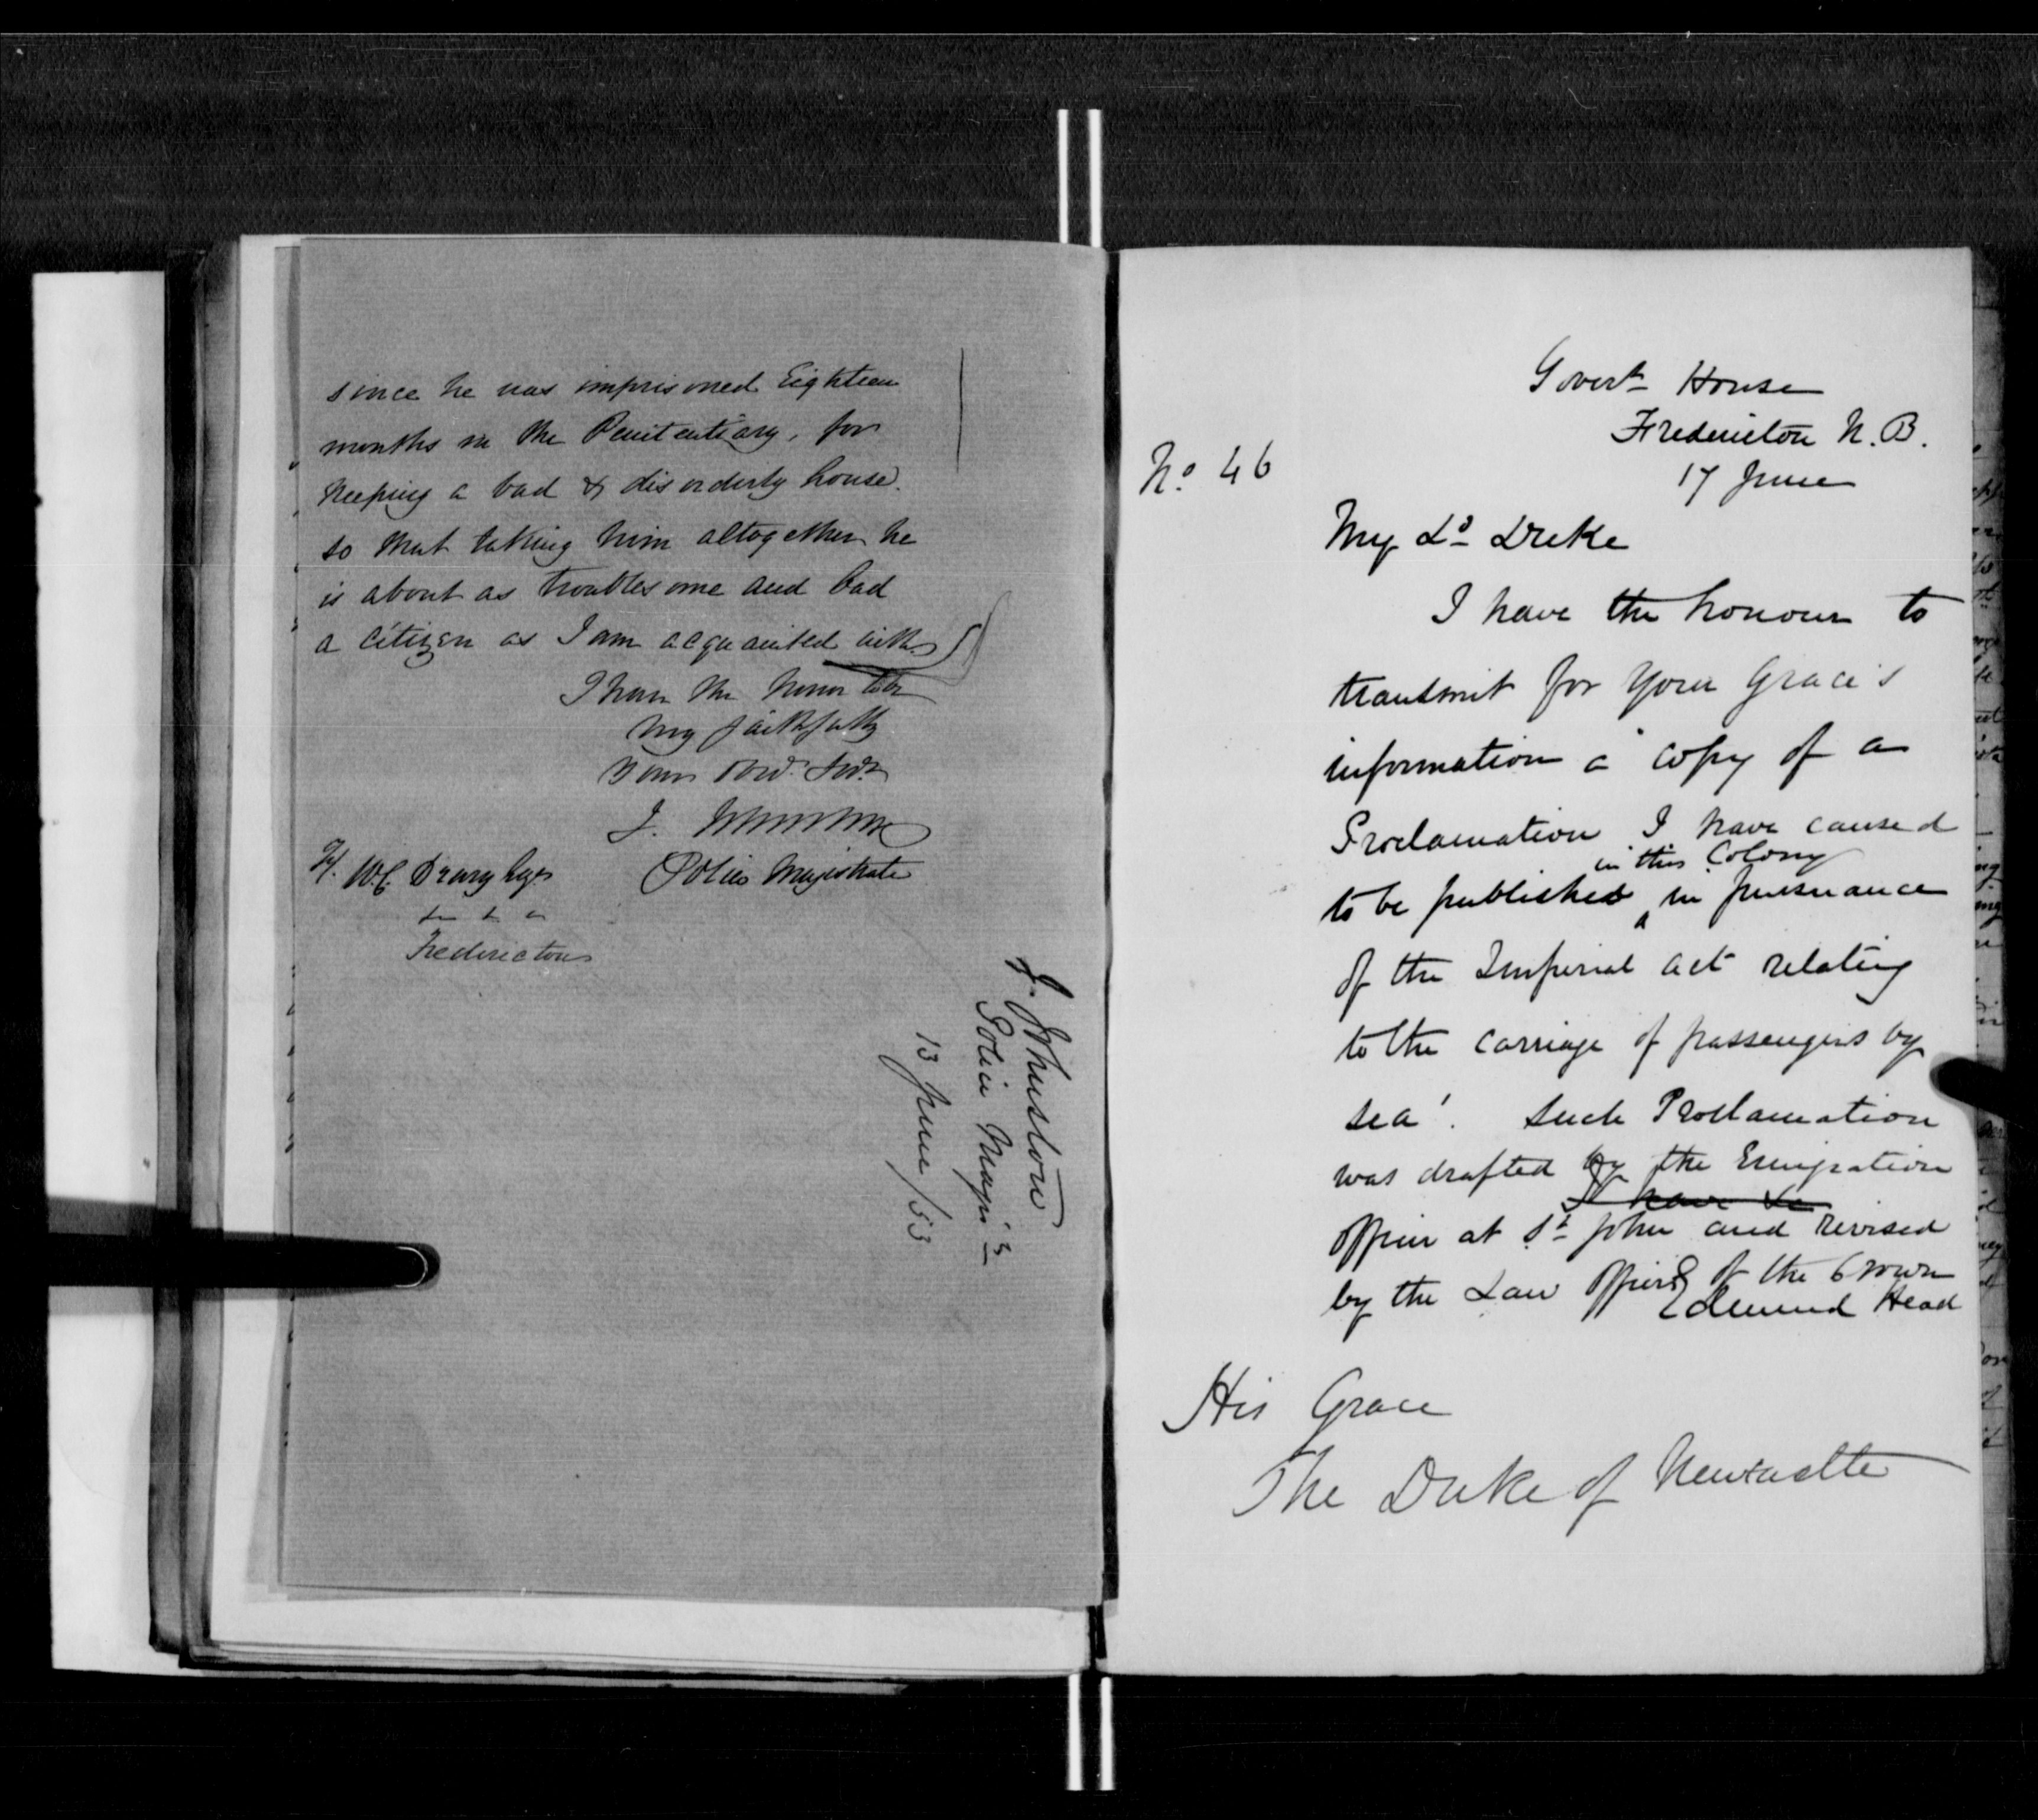 since he was imprisoned Eighteen
months in the Penitentiary, for
keeping a bad & disorderly house.
so that taking him altogether he
is about as troublesome and bad
a citizen as I am acquainted with
I have the honor to be
faithfully
Your Obd. Svt.
J. Johnston
W. C. Drury Eqr.
Police Magistrate
Fredericton
J. Johnston
Police Magis
13 June /53
Govert House
Fredericton N. B.
17 June
No. 46
My Ld Duke
I have the honour to
transmit for Your Grace's
information a copy of a
Proclamation I have caused
in this Colony
to be published ‸ in pursuance
of the Imperial act relating
to the carriage of passengers by
sea'. Such Proclamation
was drafted by the Emigration
I have
Officer at St John and revised
by the Law Officers of the Crown
Edmund Head
His Grace
The Duke of Newcastle